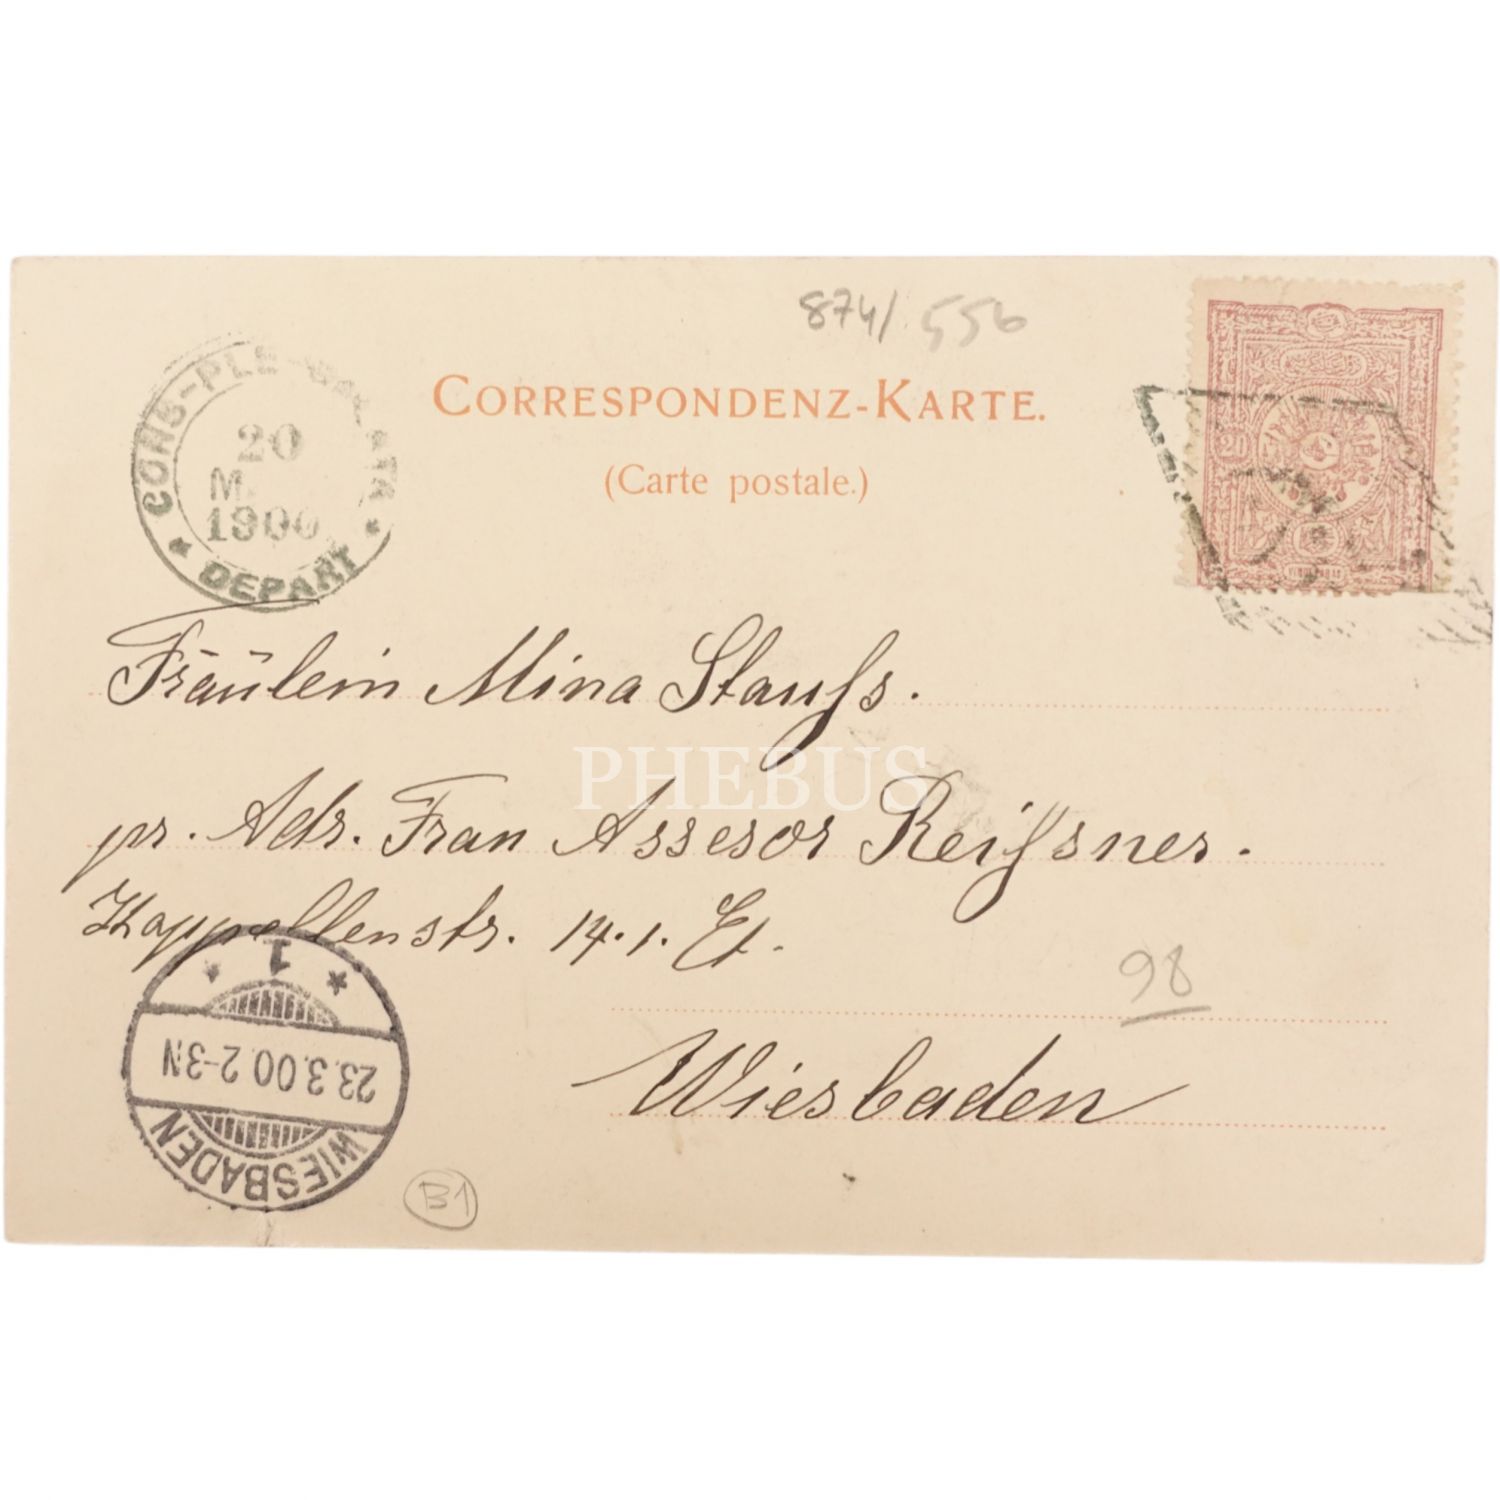 874/ 556
CORRESPONDENZ-KARTE.
(Carte postale.)
CONS-PLE-GALATA
20
M.
1900
DEPART
20
Fräulein Mina Stauſs.
PHEBUS
pr. Adr. Frau Assesor Reiſsner.
Kappellenstr. 14. 1. Et.
98
Wiesbaden
1
23.3.00.2-3N
WIESBADEN
B1